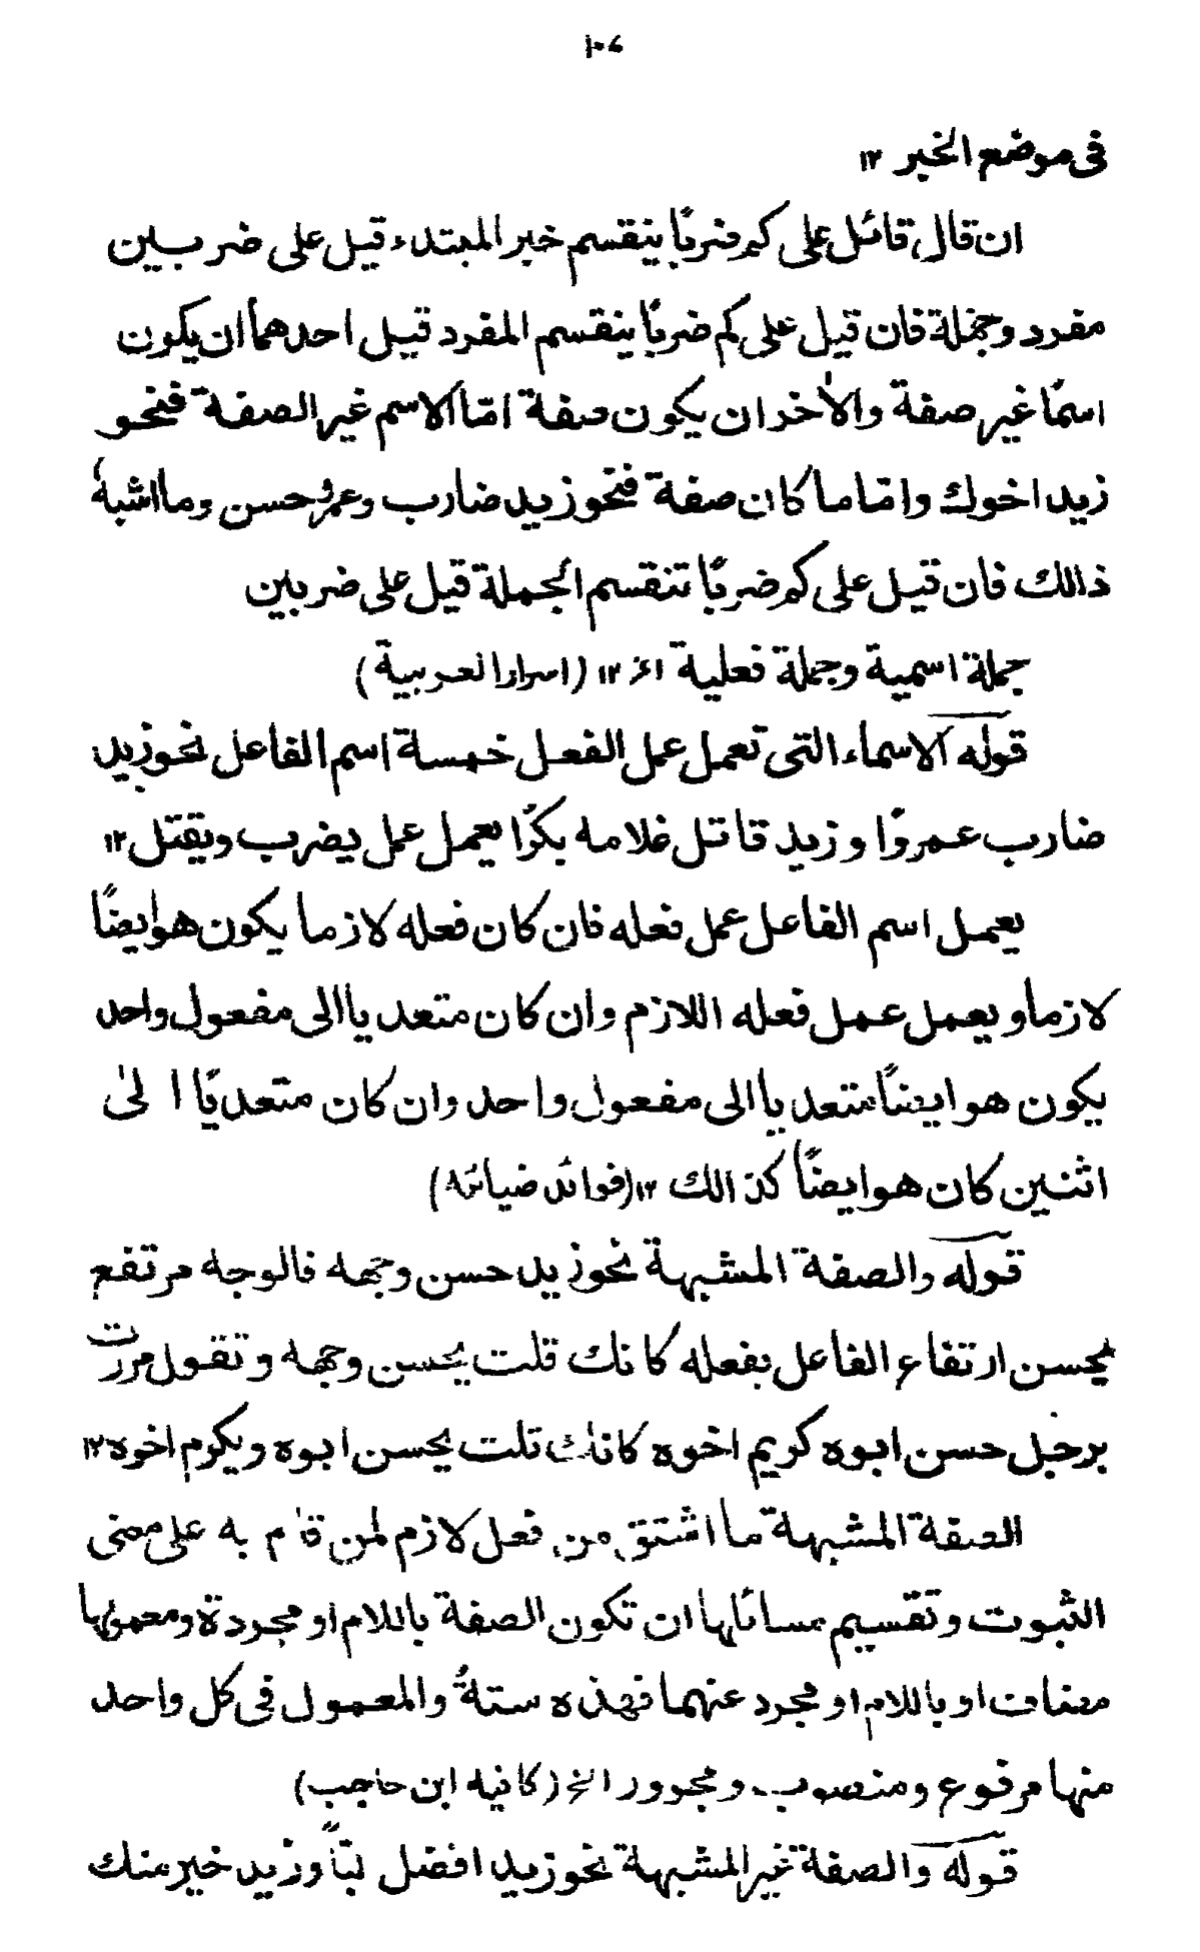 ۱۰۶
فی موضع الخبر ۱۲
ان قال قائل علی کم ضربًا ینقسم خبر المبتدء قیل علی ضربین
مفرد وجملة فان قیل علی کم ضربًا ینقسم المفرد قیل احدهما ان یکون
اسمًا غیر صفة والاٰخر ان یکون صفة امّا الاسم غیر الصفة فنحو
زید اخوك وامّا ما کان صفة فنحو زید ضارب وعمرو حسن وما اشبهٗ
ذالك فان قیل علی کم ضربًا تنقسم الجملة قیل علی ضربین
جملة اسمیة وجملة فعلیة الخ ۱۲ (اسرار العربیة)
قوله الاسماء التی تعمل عمل الفعل خمسة اسم الفاعل نحو زید
ضارب عمروًا وزید قاتل غلامه بکرًا یعمل عمل یضرب ویقتل ۱۲
یعمل اسم الفاعل عمل فعله فان کان فعله لازما یکون هو ایضًا
لازما و یعمل عمل فعله اللازم وان کان متعدیا الی مفعول واحد
یکون هو ایضًا متعدیا الی مفعول واحد وان کان متعدیًا الیٰ
اثنین کان هو ایضًا کذالك ۱۲ (فوائد ضیائیه)
قوله والصفة المشبهة نحو زید حسن وجهه فالوجه مرتفع
بحسن ارتفاع الفاعل بفعله کانك قلت یحسن وجهه وتقول مررت
برجل حسن ابوه کریم اخوه کانك قلت یحسن ابوه ویکرم اخوه ۱۲
الصفة المشبهة ما اشتق من فعل لازم لمن قام به علی معنی
الثبوت وتقسیم مسائلها ان تکون الصفة باللام او مجردة ومعمولها
مضاف او باللام او مجرد عنهما فهذه ستةٌ والمعمول فی کل واحد
منها مرفوع ومنصوب ومجرور الخ (کافیه ابن حاجب)
قوله والصفة غیر المشبهة نحو زید افضل ابًا وزید خیر منك